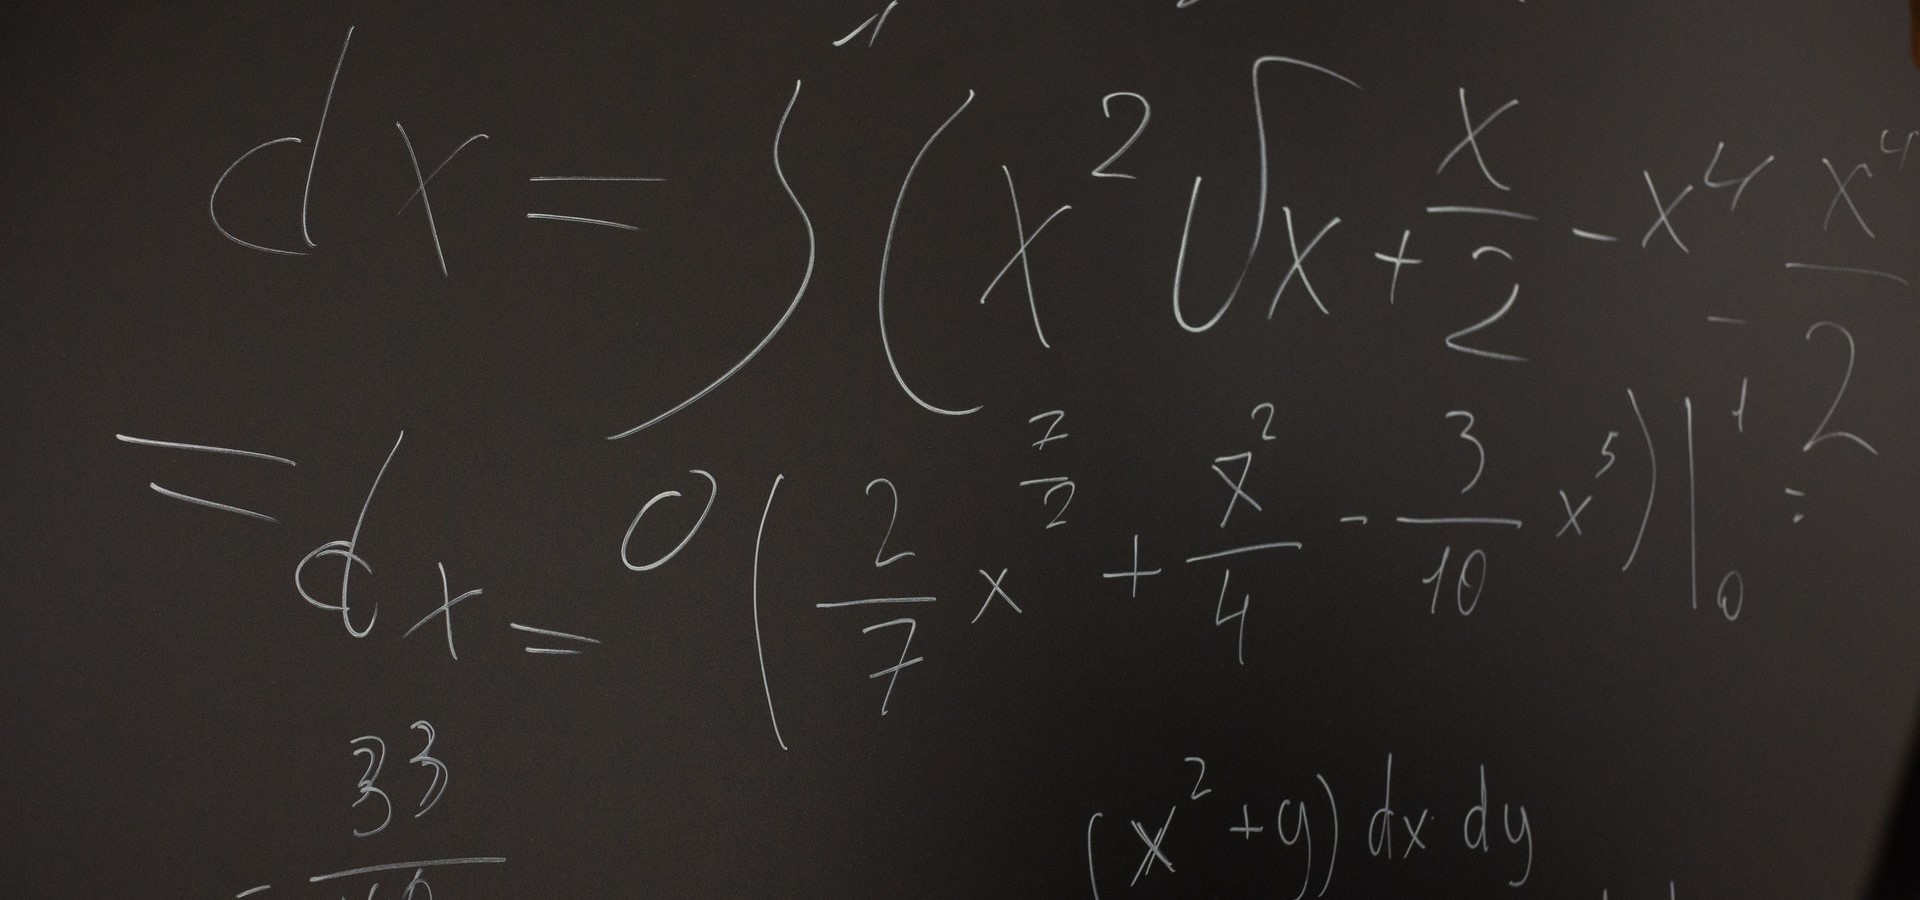 dx = ∫₀¹ (x² √x + x/2 - x⁴ - x⁴/2
= dx = (2/7 x^(7/2) + x²/4 - 3/10 x⁵) |₀¹ =
= 33/
(x² + y) dx dy